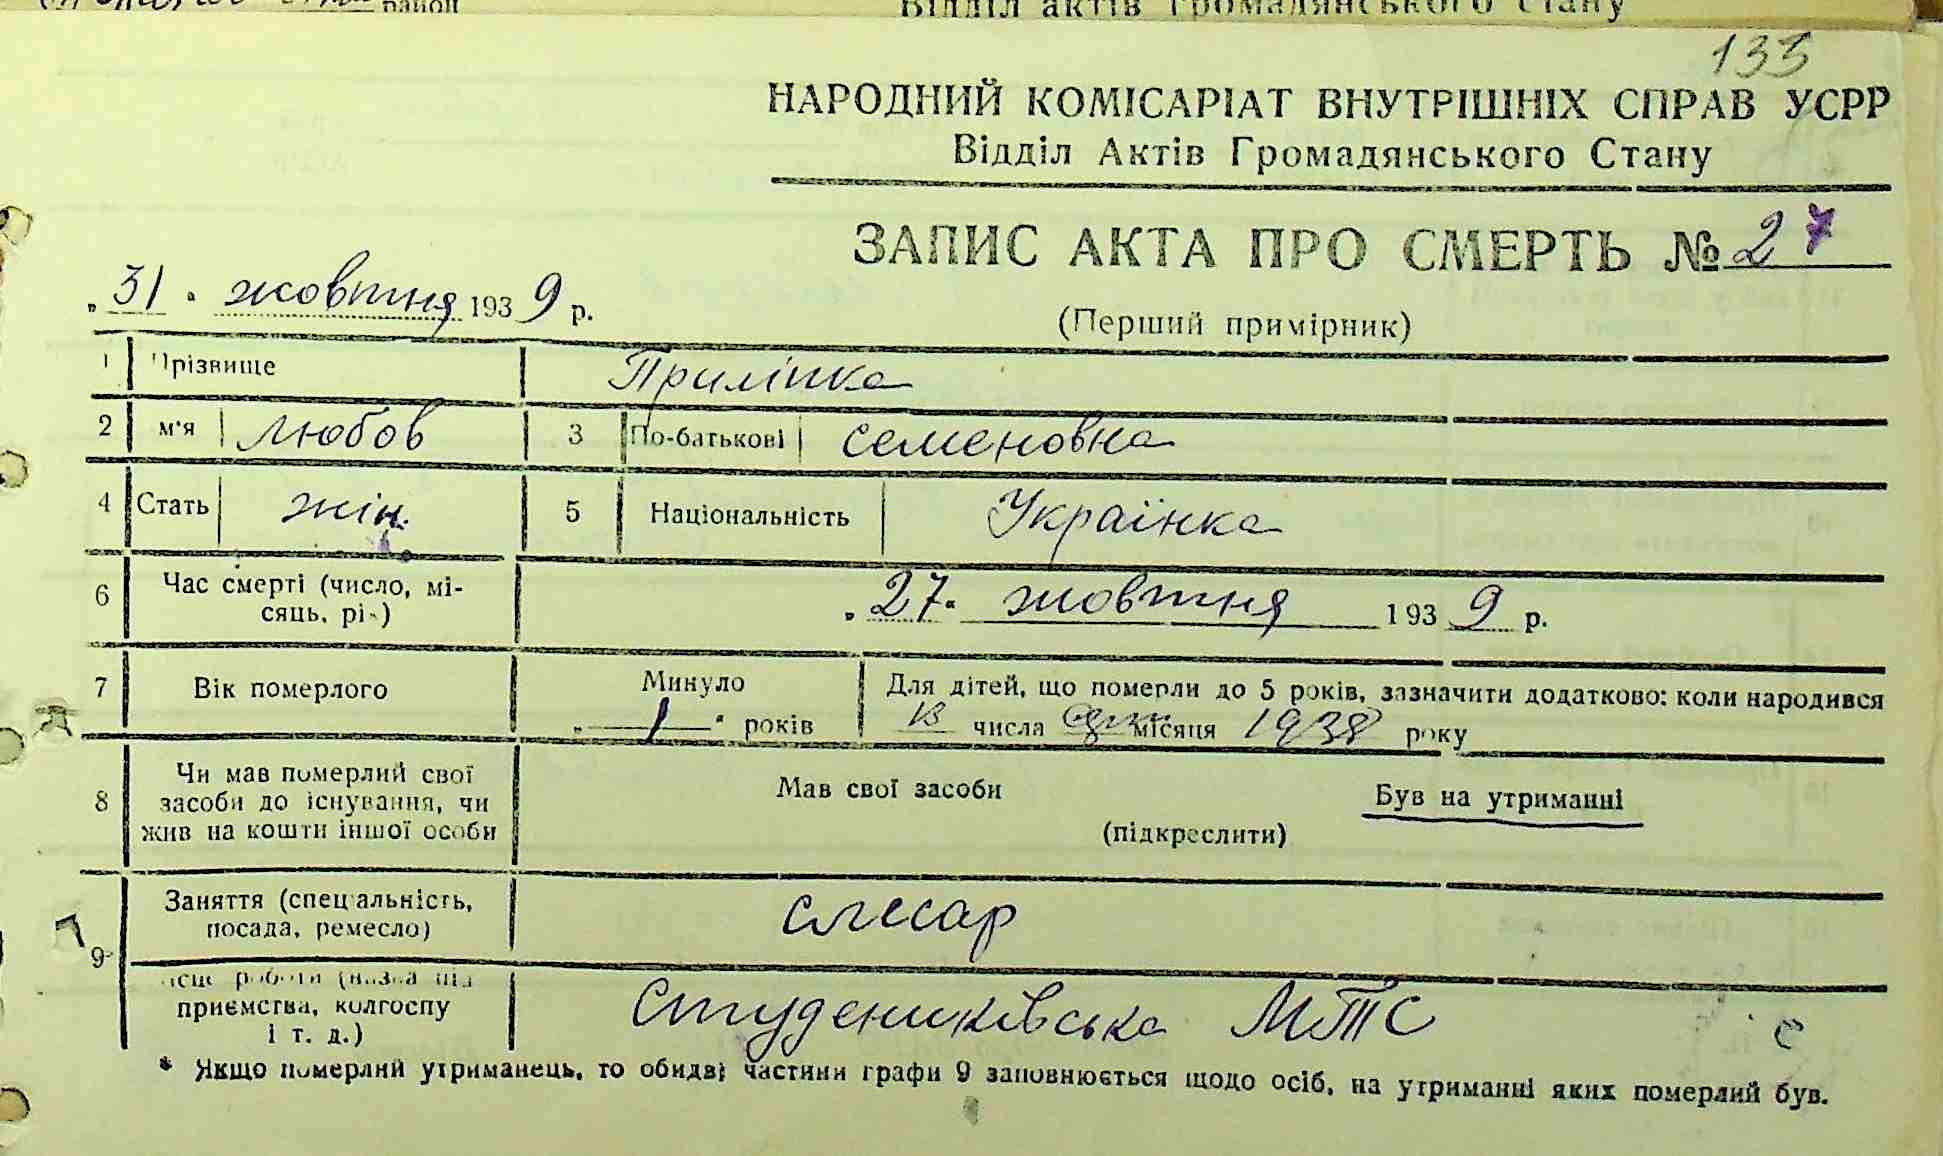 район
Відділ актів громадянського стану
133
НАРОДНИЙ КОМІСАРІАТ ВНУТРІШНІХ СПРАВ УСРР
Відділ Актів Громадянського Стану
ЗАПИС АКТА ПРО СМЕРТЬ № 27
„31“ жовтня 1939 р.
(Перший примірник)
1 Прізвище Приліпка
2 м'я Любов 3 По-батькові Семеновна
4 Стать жін. 5 Національність Українка
6 Час смерті (число, мі-
сяць, рік) „27“ жовтня 1939 р.
7 Вік померлого Минуло Для дітей, що померли до 5 років, зазначити додатково: коли народився
„1“ років числа місяця 1938 року
8 Чи мав померлий свої
засоби до існування, чи
жив на кошти іншої особи
Мав свої засоби Був на утриманні
(підкреслити)
9 Заняття (спеціальність,
посада, ремесло) слесар
місце роботи (назва під
приємства, колгоспу
і т. д.) Студениківська МТС
* Якщо померлий утриманець, то обидві частини графи 9 заповнюється щодо осіб, на утриманні яких померлий був.